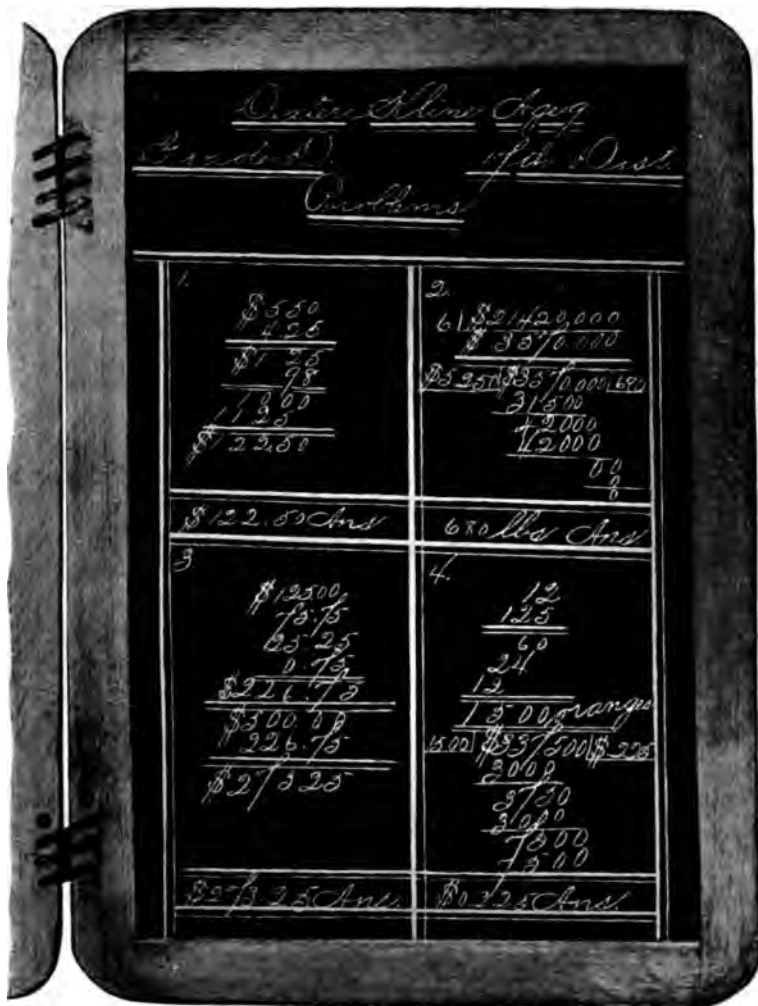 Kline Age 9
Grade D. 17th Dist.
Problems
1.
$5.50
4.25
$1.25
98
1000
1125
$122.50
$122.50 Ans
2.
6)$21420,000
$3570.000
$5250)$3570,000(680
31500
42000
42000
00
0
680 lbs Ans
3
$125.00
75.75
25.25
0.75
$226.75
$500.00
226.75
$273.25
$273.25 Ans.
4.
12
125
60
24
12
1500 oranges
1500)$337500($.225
3000
3750
3000
7500
7500
$0.225 Ans.